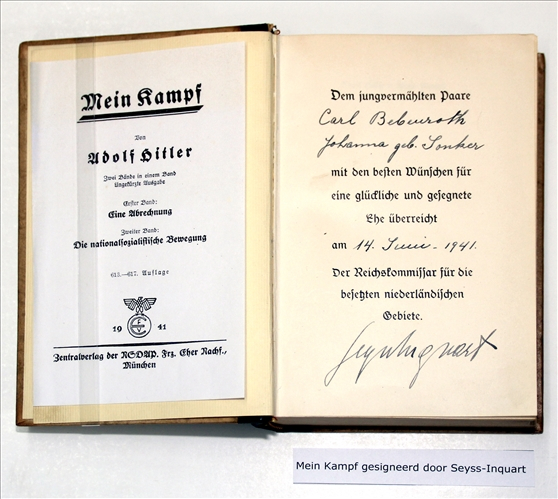 Mein Kampf
Von
Adolf Hitler
Zwei Bände in einem Band
Ungekürzte Ausgabe
Erster Band:
Eine Abrechnung
Zweiter Band:
Die nationalsozialistische Bewegung
613.—617. Auflage
19 41
Zentralverlag der NSDAP. Frz. Eher Nachf.,
München
Dem jungvermählten Paare
Carl Bebenroth
Johanna geb.
mit den besten Wünschen für
eine glückliche und gesegnete
Ehe überreicht
am 14. Juni 1941.
Der Reichskommissar für die
besetzten niederländischen
Gebiete.
Seyss-Inquart
Mein Kampf gesigneerd door Seyss-Inquart